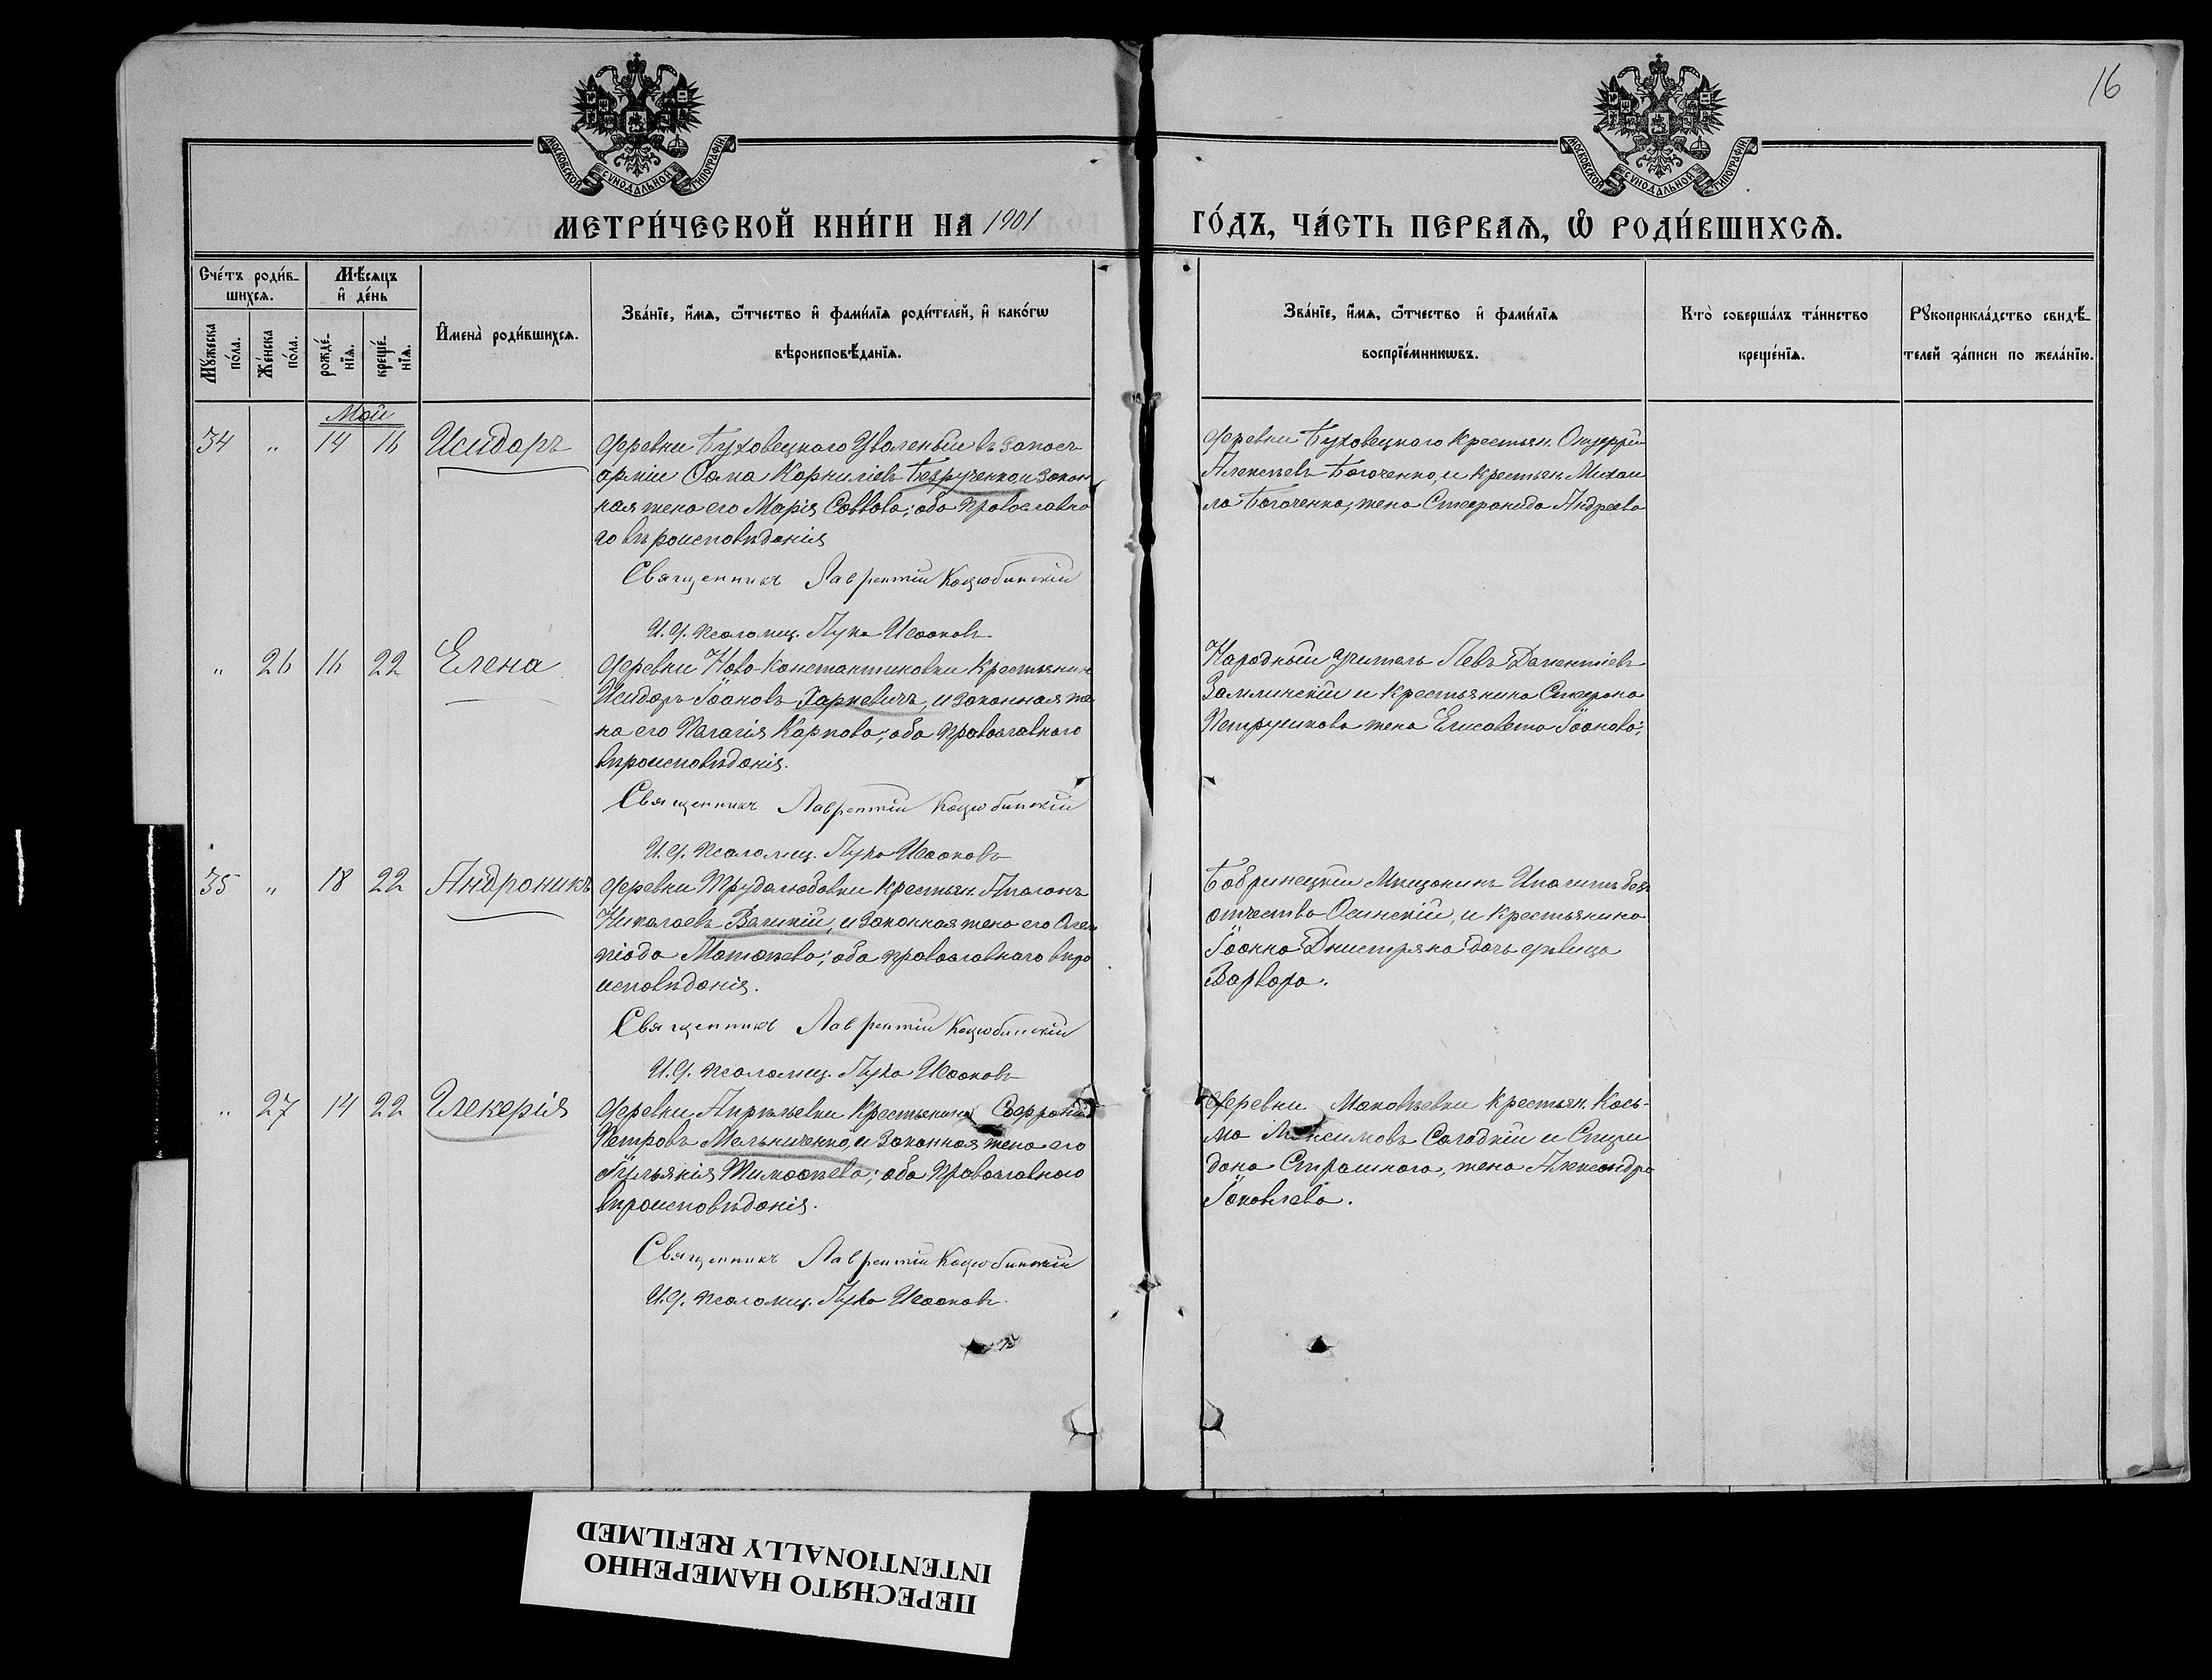 16
МОСКОВСКОЙ СУНОДАЛЬНОЙ ТИПОГРАФІИ
МОСКОВСКОЙ СУНОДАЛЬНОЙ ТИПОГРАФІИ
МЕТРИ́ЧЕСКОЙ КНИ́ГИ НА 1901
ГО́ДЪ, ЧА́СТЬ ПЕРВАѦ, Ѽ РОДИ́ВШИХСѦ.
Сче́тъ роди́в-
шихсѧ.
Мѣ́сѧцъ
и҆ де́нь
Мꙋ́жеска
по́ла.
Же́нска
по́ла.
рожде́-
нїѧ.
креще́-
нїѧ.
И҆мена̀ роди́вшихсѧ.
Зва́нїе, и҆́мѧ, ѻ҆́тчество и҆ фами́лїѧ роди́телей, и҆ како́гѡ
вѣроисповѣ́данїѧ.
Зва́нїе, и҆́мѧ, ѻ҆́тчество и҆ фами́лїѧ
воспрїе́мникѡвъ.
Кто̀ соверша́лъ та́инство
креще́нїѧ.
Рꙋкоприкла́дство свидѣ́-
телей за́писи по жела́нїю.
Май
34 " 14 16 Исидоръ
деревни Буховецкаго Уволеный въ запасъ
арміи Сава Корниліевъ Безрученко, и закон
ная жена его Марія Саввова; оба православна
го вѣроисповѣданія
Священникъ Лаврентій Коцюбинскій
И. д. псаломщ. Лука Исааковъ
деревни Буховецкаго крестьян. Онуфрій
Алексѣевъ Богаченко, и крестьян. Михаи
ла Богаченка, жена Стефанида Андреева
" 26 16 22 Елена
деревни Ново Константиновки крестьянинъ
Исидоръ Іоановъ Харкевичъ, и законная же
на его Пелагія Карпова; оба православнаго
вѣроисповѣданія.
Священникъ Лаврентій Коцюбинскій
И. д. псаломщ. Лука Исааковъ
Народный учитель Левъ Дементіевъ
и крестьянина Стефана
Петрушкова жена Елисавета Іоанова;
35 " 18 22 Андроникъ
деревни Трудолюбовки крестьян. Аполонъ
Николаевъ Великій, и законная жена его Олим
піада Матѳѣева; оба православнаго вѣро
исповѣданія.
Священникъ Лаврентій Коцюбинскій
И. д. псаломщ. Лука Исааковъ
Бобринецкій мѣщанинъ Иполитъ безъ
отчества Осинскій, и крестьянина
Іоанна Днистряна дочь дѣвица
Варвара.
" 27 14 22 Гликерія
деревни крестьянинъ Софроній
Петровъ Мельниченко, и законная жена его
Іуліанія Тимоѳѣева; оба православнаго
вѣроисповѣданія.
Священникъ Лаврентій Коцюбинскій
И. д. псаломщ. Лука Исааковъ
деревни Маковѣевки крестьян. Кось-
ма Максимовъ Солодкій и Спири
дона Страшнаго, жена Александра
Іаковлева.
ПЕРЕСНЯТО НАМЕРЕННО
INTENTIONALLY REFILMED